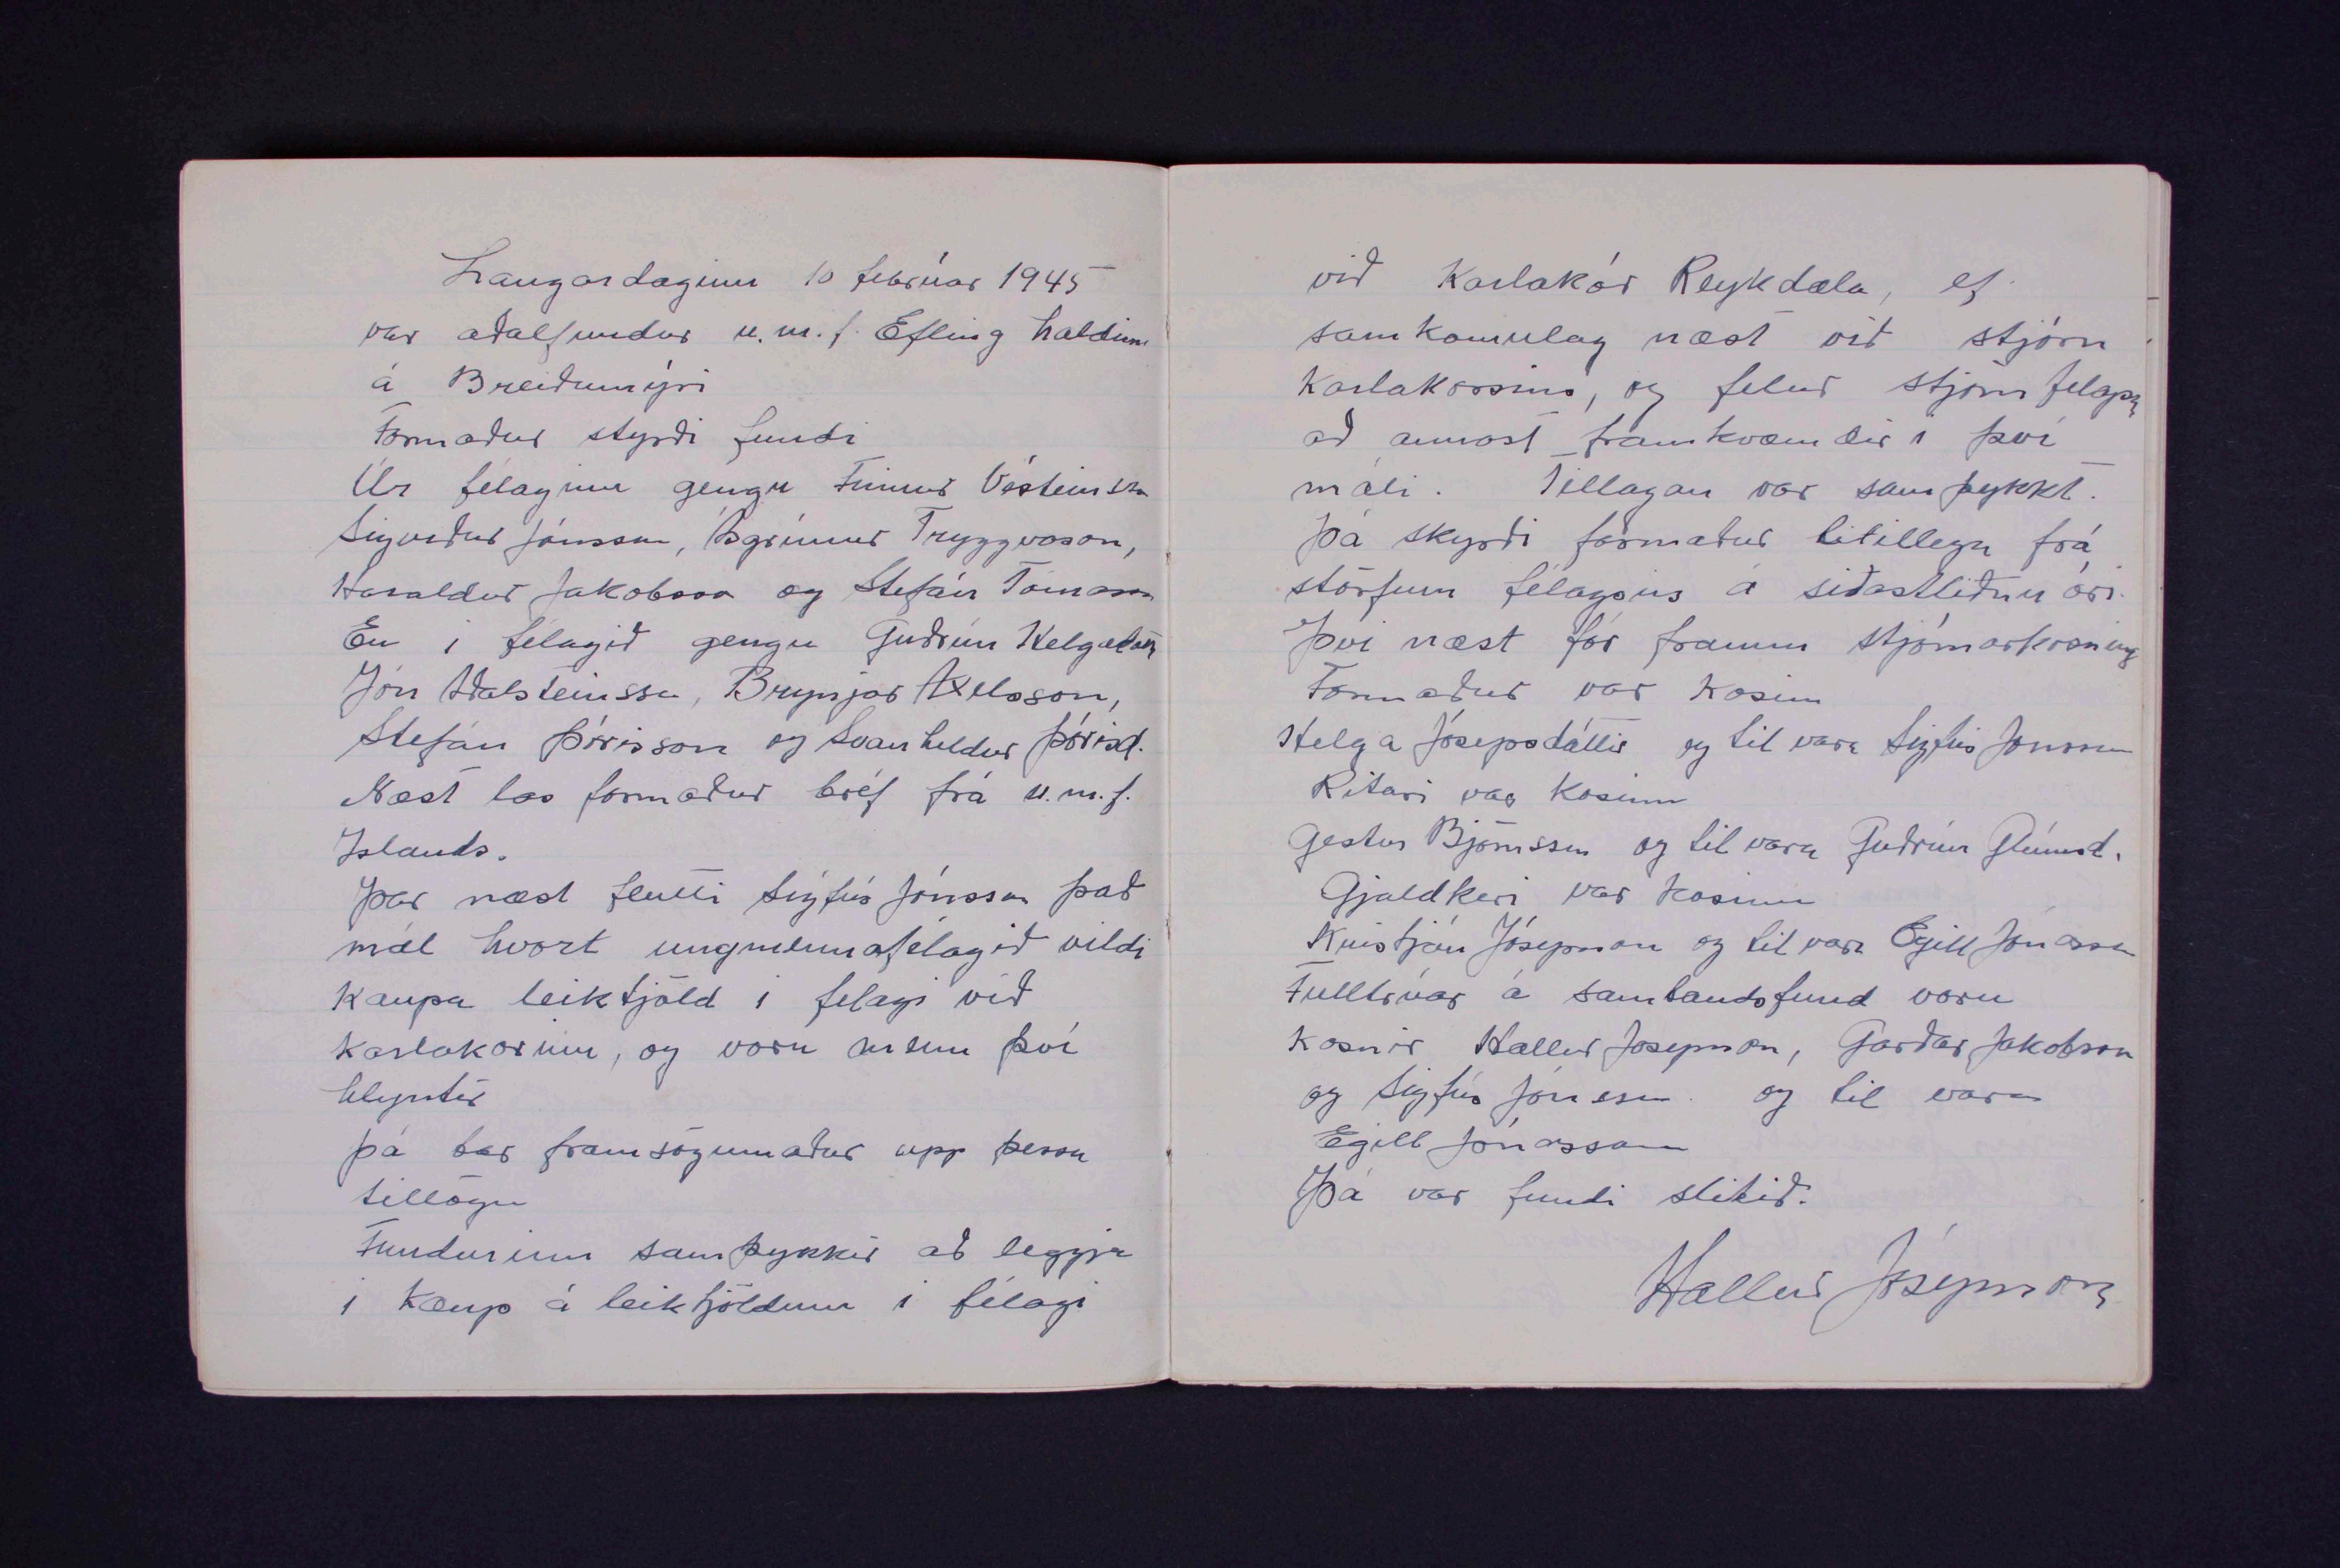 Laugardaginn 10 febrúar 1945
var aðalfundur u.m.f. Efling haldinn
á Breiðumýri
Formaður styrði fundi
Úr félaginu gengu Finnur Vésteinsson
Sigurður Jónsson, Ásgrímur Tryggvason,
Haraldur Jakobsson og Stefán Tómasson
En í félagið gengu Guðrún Helgadóttir
Jón Aðalsteinsson, Brynjar Axelsson,
Stefán Þórisson og Svanhildur Þórisd.
Næst las formaður bréf frá u.m.f.
Islands.
Þar næst flutti Sigfús Jónsson það
mál hvort ungmennafélagið vildi
kaupa leiktjöld i felagi við
karlakorinn, og voru menn því
hlyntir
Þá bar framsögumaður upp þessa
tillögu
Fundurinn samþykkir að leggja
i kaup á leiktjöldum i félagi
við Karlakór Reykdæla, ef
samkomulag næst við stjórn
Karlakorsins, og felur stjórn felagsins
að annast framkvæmdir i því
máli. Tillagan var samþykkt.
Þá skyrði formaður litillega frá
störfum félagsins á siðastliðnu ári.
Því næst fór framm stjórnarkosning
Formaður var kosinn
Helga Jósepsdóttir og til vara Sigfús Jonsson
Ritari var kosinn
Gestur Björnsson og til vara Guðrún Glúmsd.
Gjaldkeri var kosinn
Kristján Jósepsson og til vara Egill Jónasson
Fulltrúar á sambandsfund voru
kosnir Hallur Josepsson, Garðar Jakobsson
og Sigfús Jónsson. og til vara
Egill Jónasson
Þá var fundi slitið.
Hallur Jósepsson